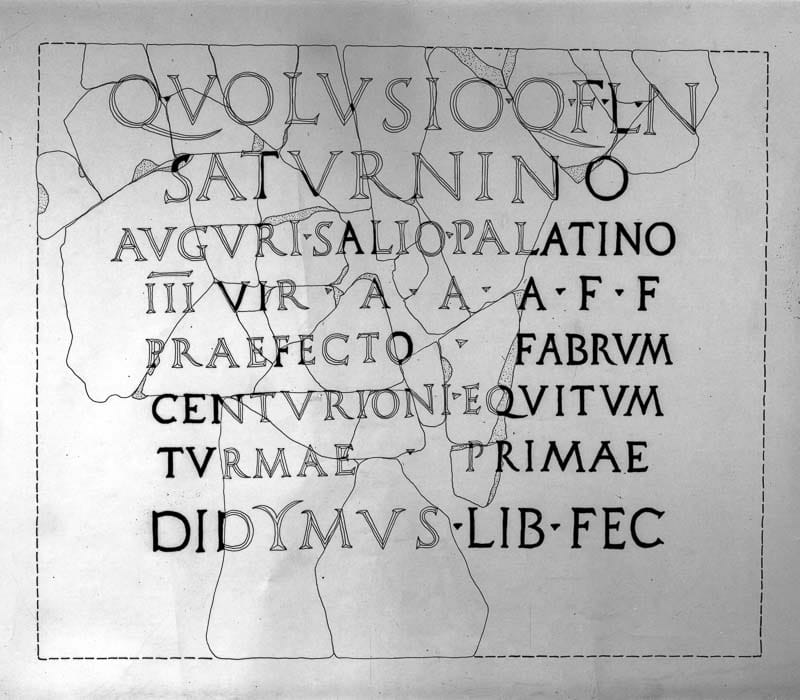 Q VOLVSIO·Q·F·L·N
SATVRNINO
AVGVRI·SALIO·PALATINO
III VIR · A · A · A · F · F
PRAEFECTO · FABRVM
CENTVRIONI·EQVITVM
TVRMAE · PRIMAE
DIDYMVS·LIB·FEC